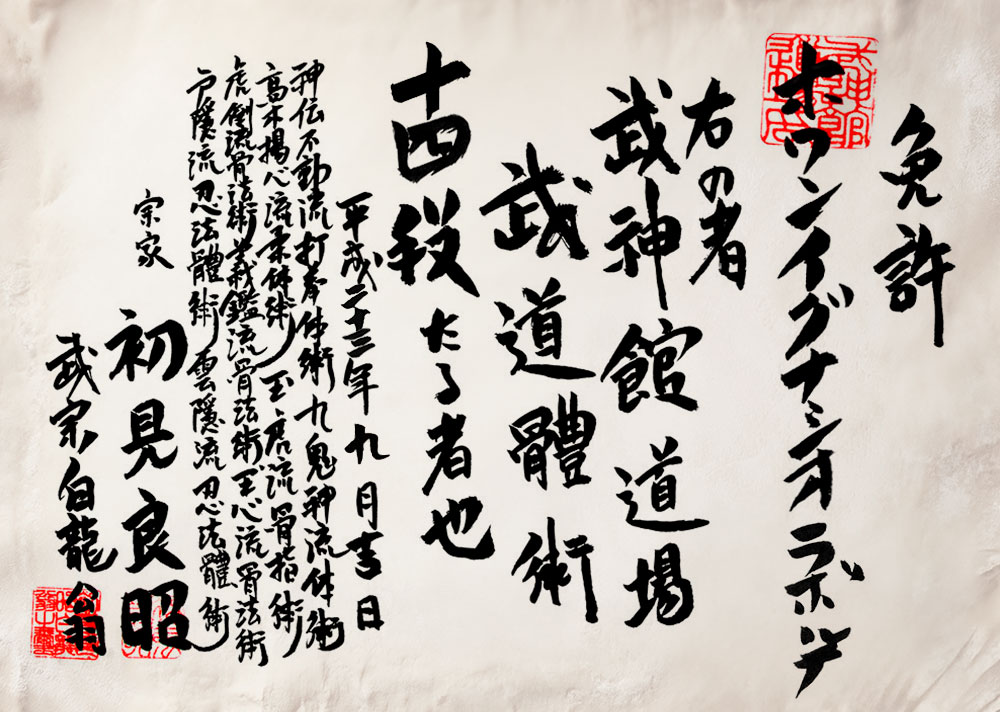 免許
ホワンイグナシオラボルダ
右の者
武神館道場
武道體術
十四段たる者也
平成二十三年九月吉日
神伝不動流打拳体術九鬼神流体術
高木揚心流柔体術玉虎流骨指術
虎倒流骨法術義鑑流骨法術玉心流骨法術
戸隠流忍法體術雲隠流忍法體術
宗家
初見良昭
武宗白龍翁